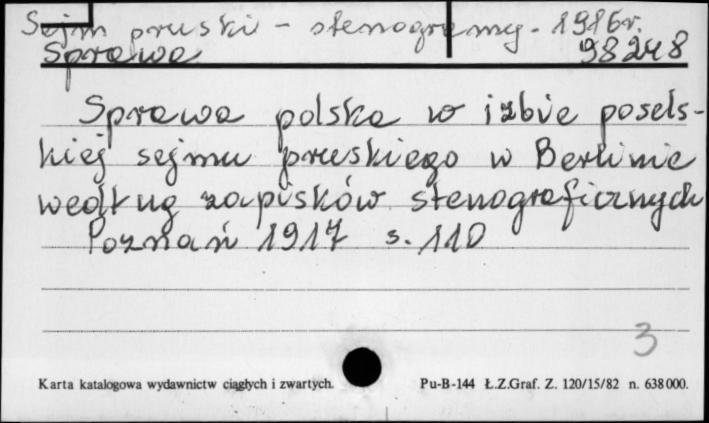 Sejm pruski - stenogramy - 1916r.
Sprawa 98248
Sprawa polska w izbie posels-
kiej sejmu pruskiego w Berlinie
według zapisków stenograficznych
Poznań 1917 s. 110
3
Karta katalogowa wydawnictw ciągłych i zwartych. Pu-B-144 Ł.Z.Graf. Z. 120/15/82 n. 638 000.